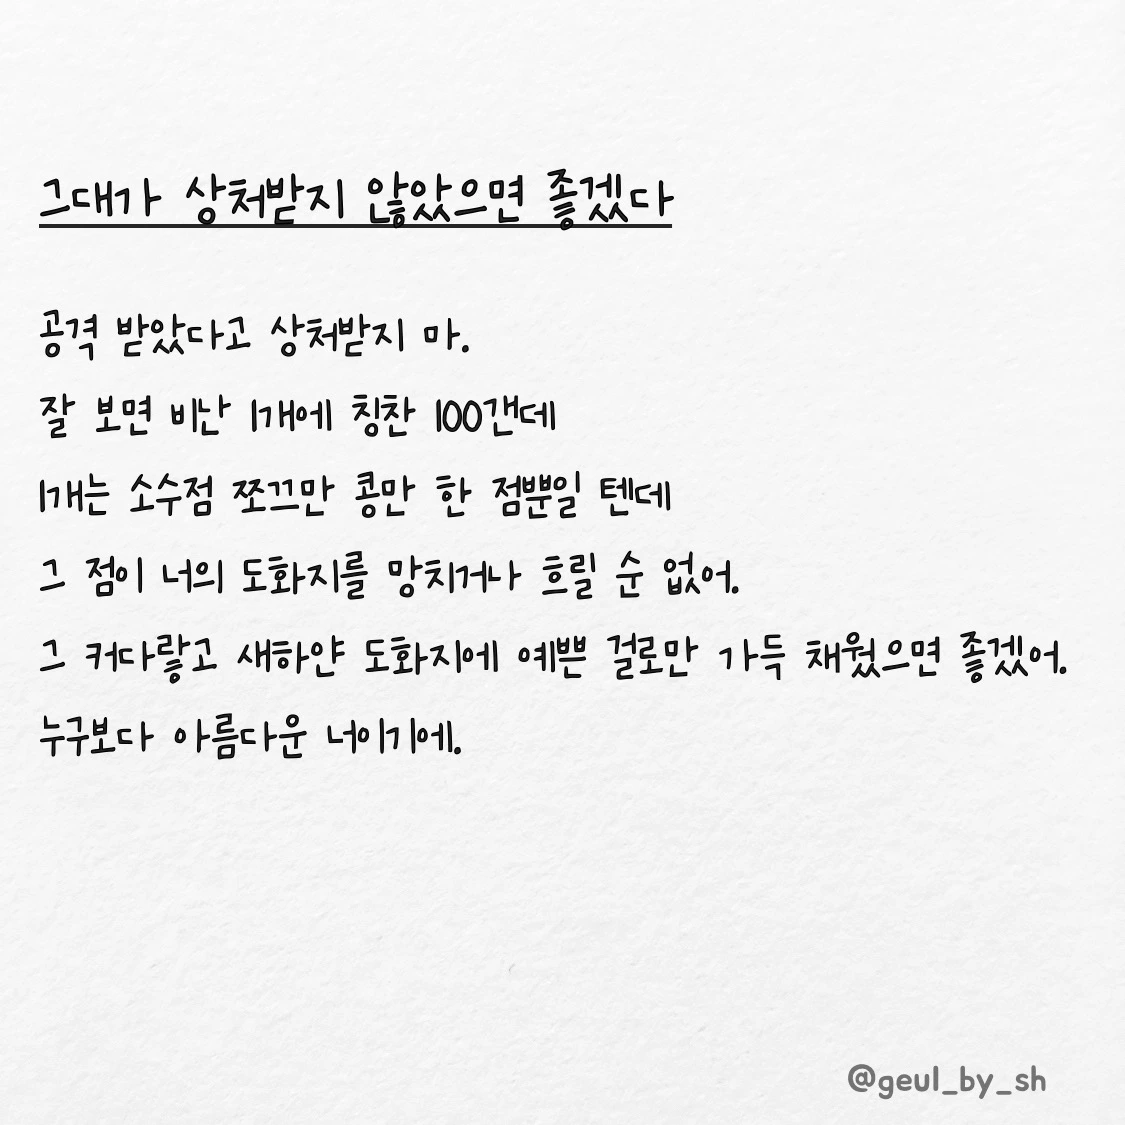 그대가 상처받지 않았으면 좋겠다
공격 받았다고 상처받지 마.
잘 보면 비난 1개에 칭찬 100갠데
1개는 소수점 쪼끄만 콩만 한 점뿐일 텐데
그 점이 너의 도화지를 망치거나 흐릴 순 없어.
그 커다랗고 새하얀 도화지에 예쁜 걸로만 가득 채웠으면 좋겠어.
누구보다 아름다운 너이기에.
@geul_by_sh